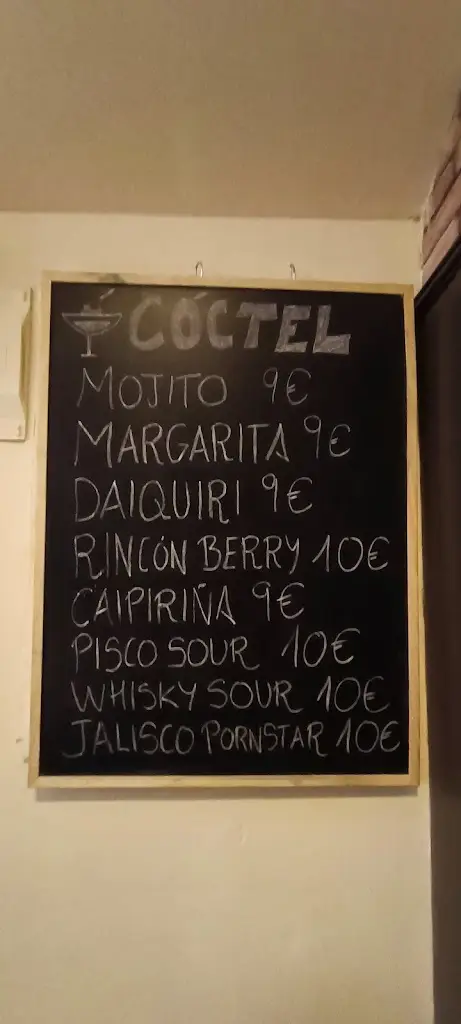 CÓCTEL
MOJITO 9€
MARGARITA 9€
DAIQUIRI 9€
RINCÓN BERRY 10€
CAIPIRIÑA 9€
PISCO SOUR 10€
WHISKY SOUR 10€
JALISCO PORNSTAR 10€